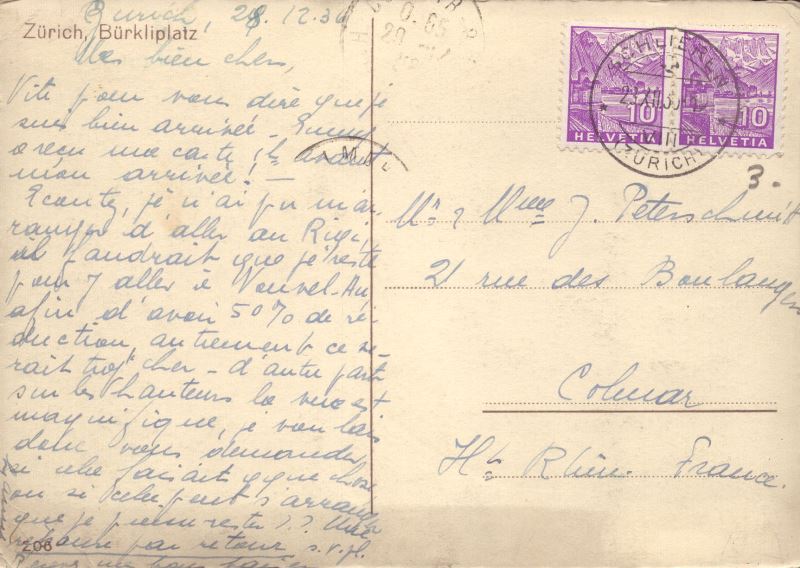 Zurich, 28.12.3
Zürich, Bürkliplatz
Mes bien chers,
Vite pour vous dire que je
suis bien arrivée.
a reçu ma carte avant
mon arrivée! —
Ecoute, je n'ai pu m'ar-
ranger d'aller au Rigi,
il faudrait que je reste
pour y aller à Nouvel-An,
afin d'avoir 50% de ré-
duction, autrement ce se-
rait trop cher - d'autre part
sur les hauteurs la vue est
magnifique, je voulais
donc vous demander
si cela faisait qque chose
ou si cela peut s'arranger
que je puisse rester?? Une
réponse par retour s.v.pl.
206
10 HELVETIA
10 HELVETIA
SCHLIEREN
(ZÜRICH)
3.-
Mr & Mme J. Peterschmitt
21 rue des Boulangers
Colmar
Ht Rhin. France.